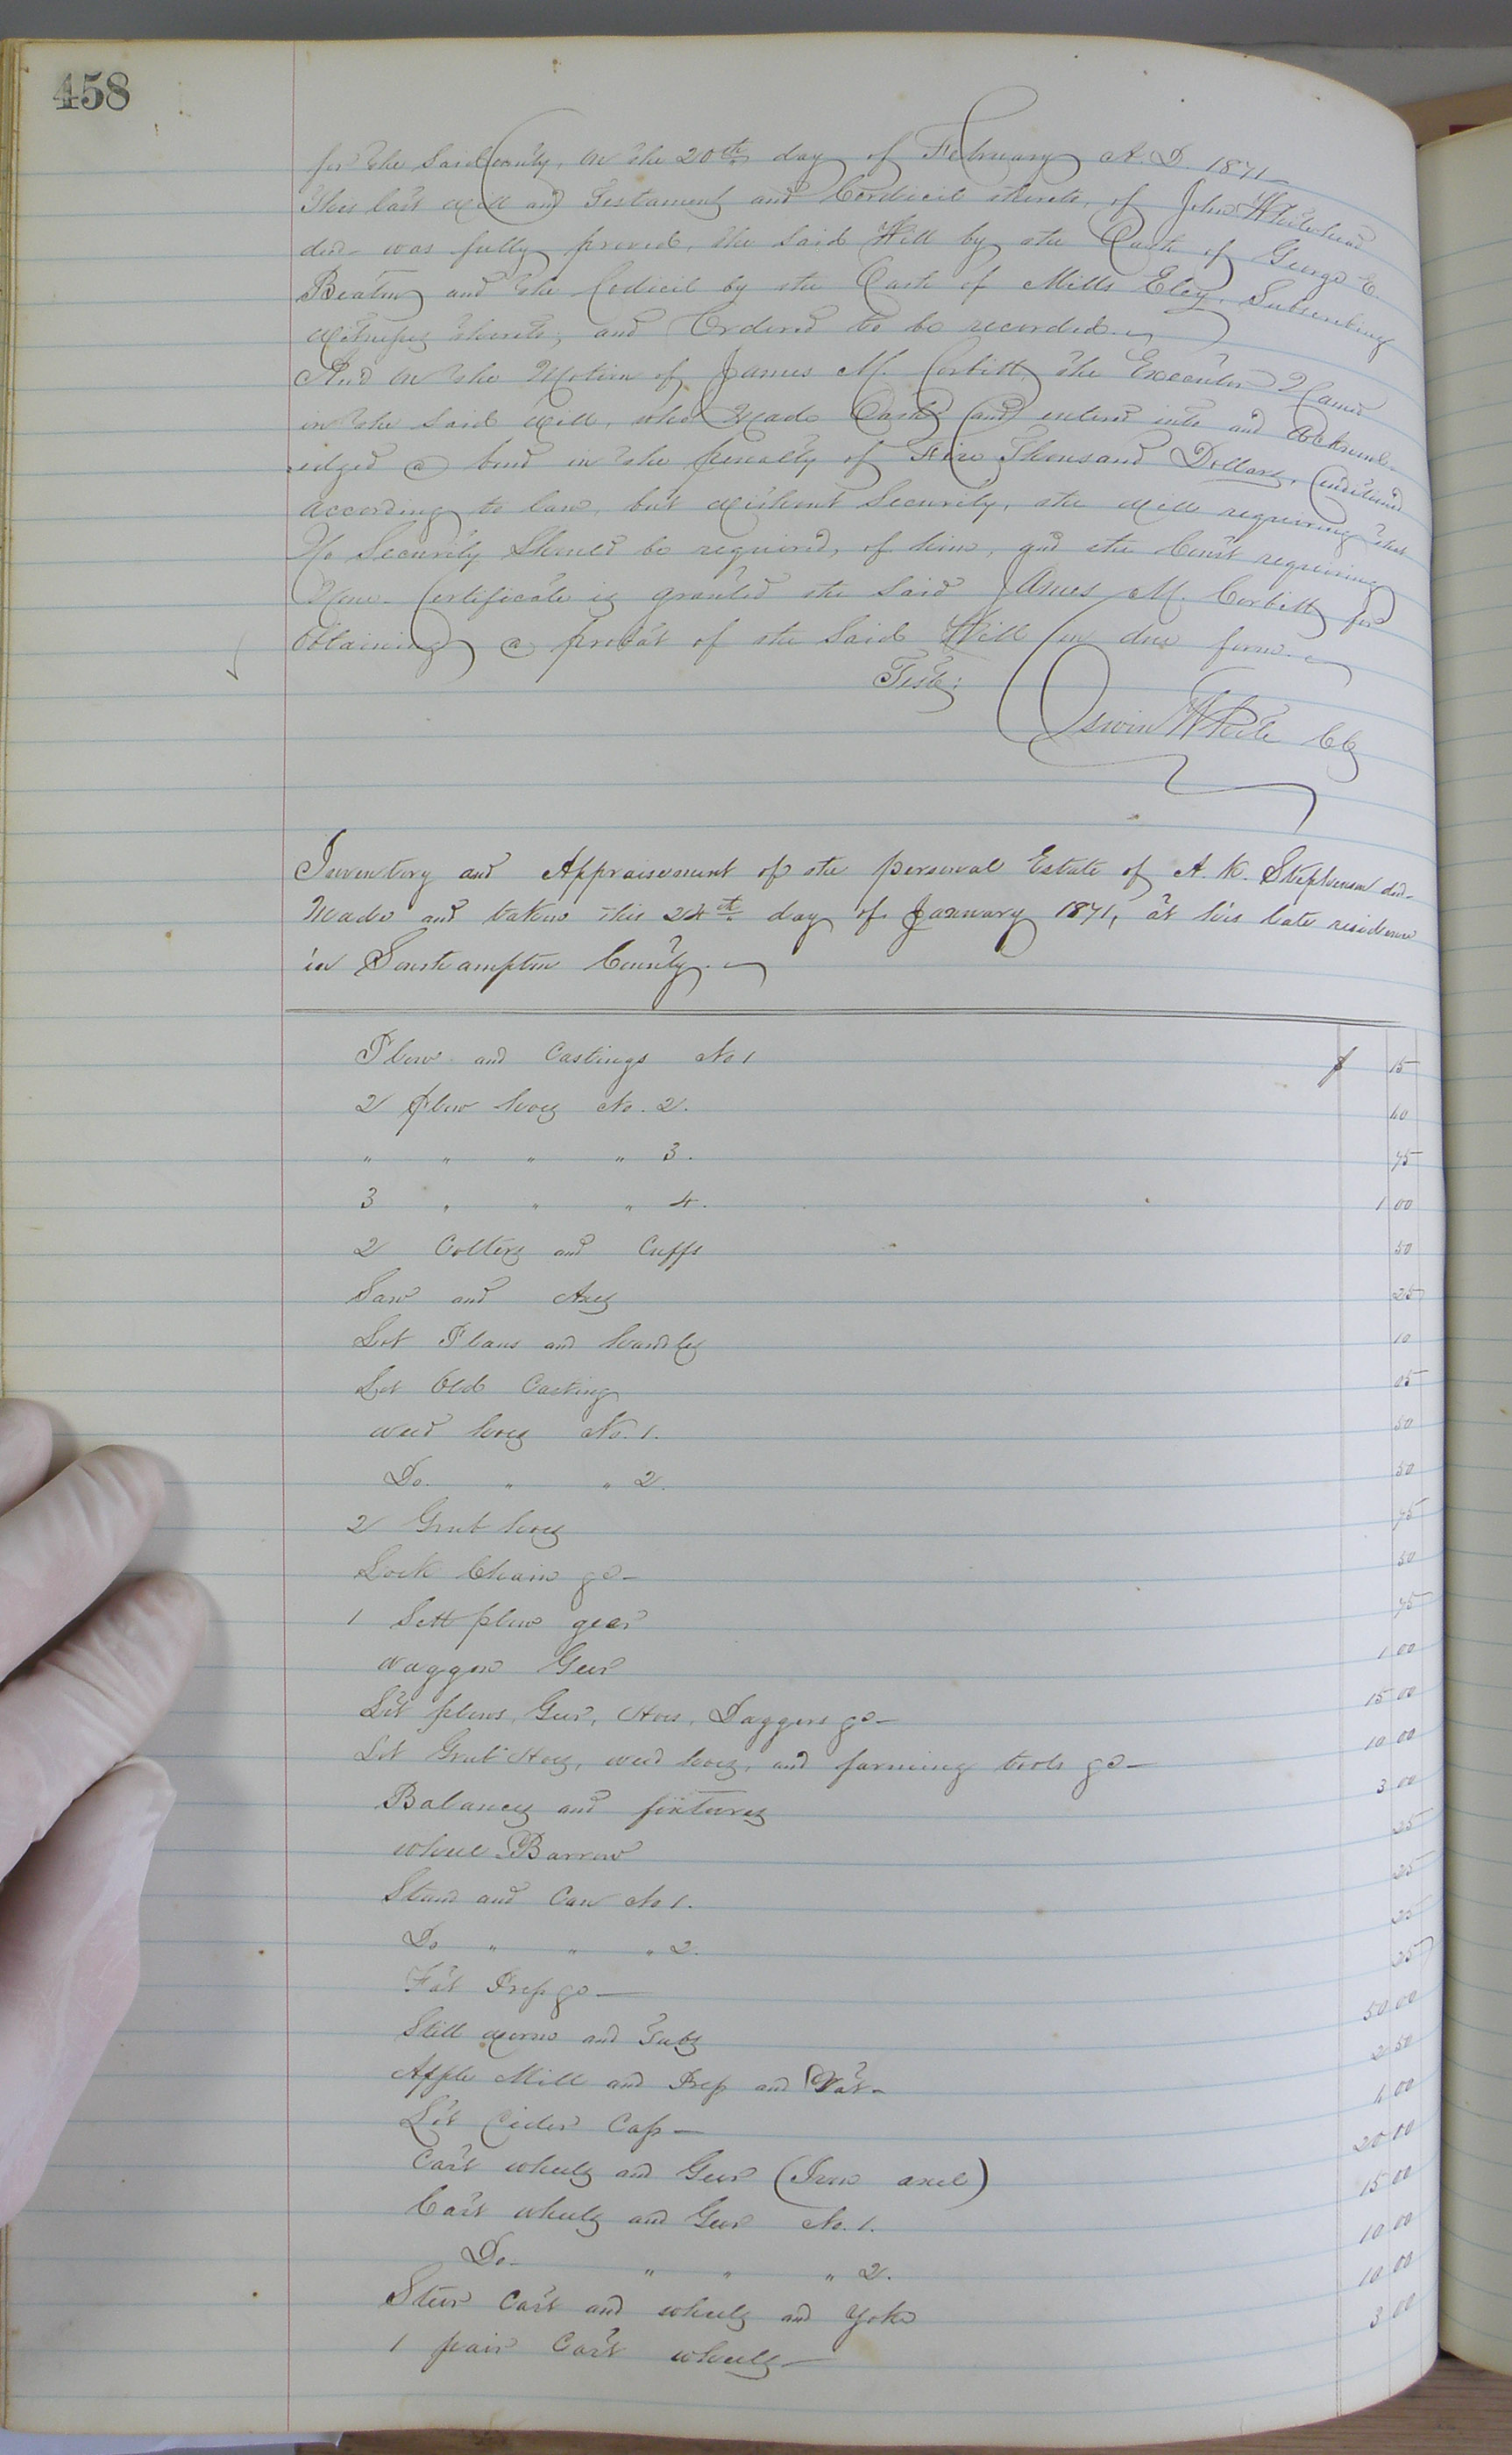 458
for the Said County, on the 20th day of February A.D. 1871
This last Will and Testament and Cordicil thereto, of John Whitehead
decd- was fully proved, the Said Will by the Oath of George E.
Beaton and the Codicil by the Oath of Mills Eley, Subscribing
Witnesses thereto, and Ordered to be recorded.
And on the Motion of James M. Corbitt, the Executor Named
in the Said Will, who Made Oath and entered into and Acknowl-
edged a bond in the penalty of Five Thousand Dollars, Conditioned
According to law, but Without Security, the Will requiring that
No Security Should be required, of him, and the Court requiring
None- Certificate is granted the Said James M. Corbitt for
Obtaining a probat of the Said Will in due form.
Teste;
Oswin White CC
Inventory and Appraisement of the personal Estate of A. K. Stephenson decd-
Made and taken this 24th day of January 1871, at his late residence
in Southampton County.
Plow and Castings No 1 $ 15
2 plow hoes No. 2. 40
" " " " 3. 75
3 " " " 4. 1 00
2 Colters and Cuffs 50
Saw and Axes 25
Lot Planes and handles 10
Lot Old Casting 05
weed hoes No. 1. 50
Do. " " 2. 50
2 Grub hoes 75
Lock Chain &c- 50
1 Sett plow gear 75
waggon Gear 1 00
Lot plows, Gear, Hoes, Daggers &c- 15 00
Lot Grub Hoes, weed hoes, and farming tools &c- 10 00
Balances and fixtures 3 00
wheel Barrow 25
Stand and Can No 1. 25
Do " " " 2. 25
Fat Press &c- 25
Still worm and Tubs 50 00
Apple Mill and Press and Vat- 2 50
Lot Cider Cass- 4 00
Cart wheels and Gear (Iron axel) 20 00
Cart wheels and Gear No. 1. 15 00
Do- " " " 2. 10 00
Steer Cart and wheels and Yoke 10 00
1 pair Cart wheels- 3 00